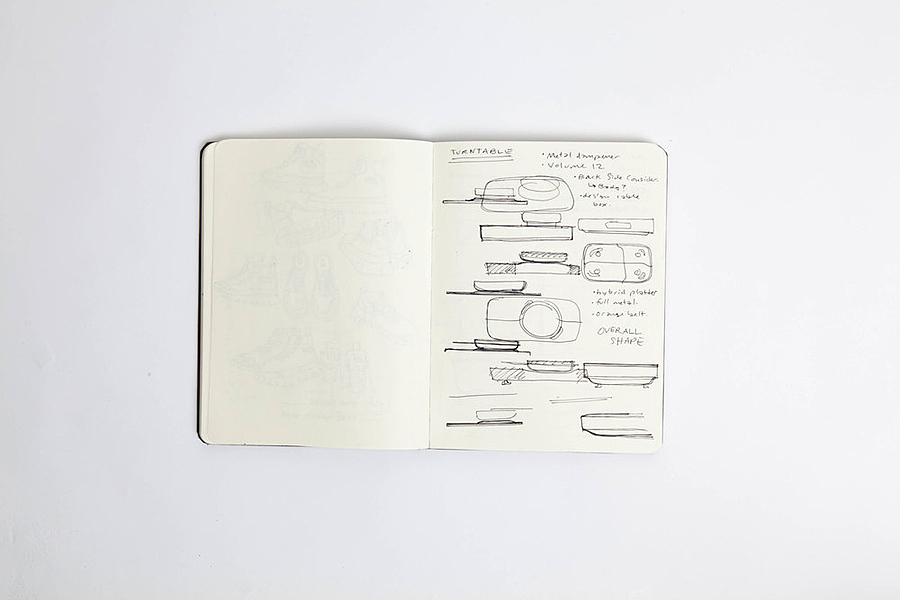 TURNTABLE
• Metal dampener
• Volume 12
• Back Side Consider
↳ Body?
• design cable
box.
• hybrid platter
• full metal.
• orange belt.
OVERALL
SHAPE